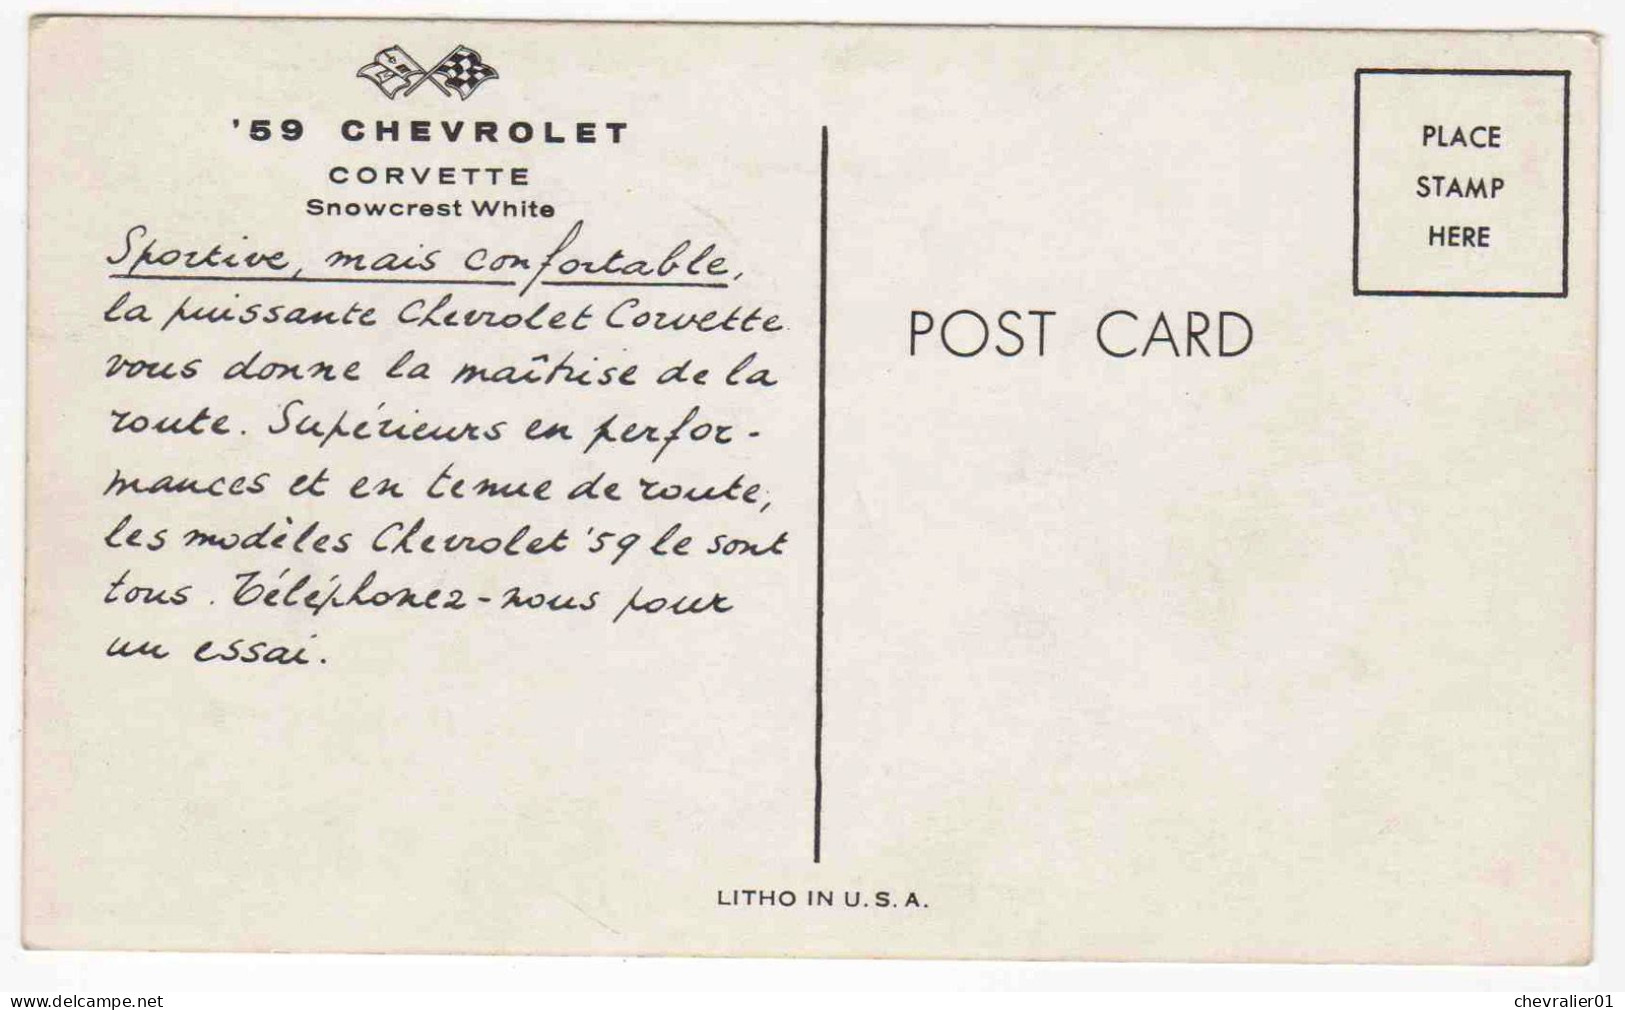 '59 CHEVROLET
CORVETTE
Snowcrest White
Sportive, mais confortable,
la puissante Chevrolet Corvette
vous donne la maîtrise de la
route. Supérieurs en perfor-
mances et en tenue de route,
les modèles Chevrolet '59 le sont
tous. Téléphonez-nous pour
un essai.
PLACE
STAMP
HERE
POST CARD
LITHO IN U.S.A.
www.delcampe.net
chevralier01